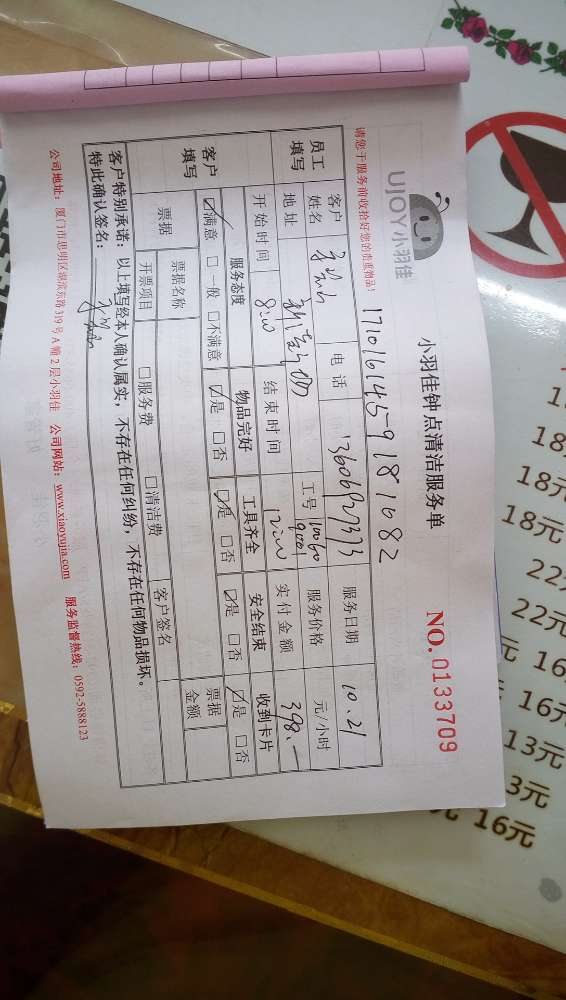 UJOY小羽佳
小羽佳钟点清洁服务单
NO. 0133709
请您于服务前收拾好您的贵重物品!
1710161459181082
员工填写
客户姓名
电话
服务日期 10.21
地址
工号
服务价格 元/小时
开始时间 8:00
结束时间 12:00
实付金额 398.—
客户填写
服务态度 物品完好 工具齐全 安全结束 收到卡片
☑满意 □一般 □不满意 ☑是 □否 ☑是 □否 ☑是 □否 ☑是 □否
票据
票据名称
客户签名
票据金额
开票项目 □服务费 □清洁费
客户特别承诺:以上填写经本人确认属实,不存在任何纠纷,不存在任何物品损坏。
特此确认签名:
公司地址:厦门市思明区湖滨东路319号A幢2层小羽佳 公司网站:www.xiaoyujia.com 服务监督热线:0592-5888123
18元
18元
18元
22元
16元
16元
13元
3元
16元